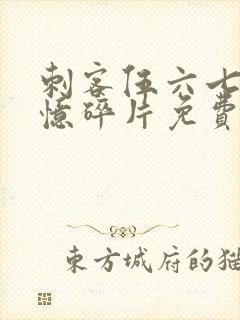 刺客伍六七
憶碎片免費
東方城府的猫